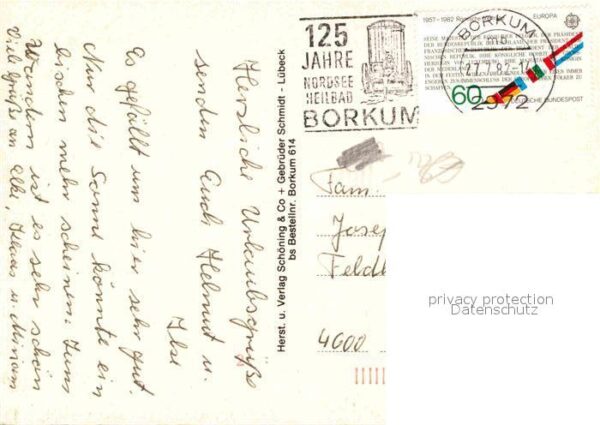 Herzliche Urlaubsgrüße
senden Euch Helmut u.
Ilse
Es gefällt uns hier sehr gut.
Nur die Sonne könnte ein
bischen mehr scheinen. Zum
Wandern ist es sehr schön
Viele Grüße an Elke, Klaus u. Miriam
Herst. u. Verlag Schöning & Co + Gebrüder Schmidt - Lübeck
bs Bestellnr. Borkum 614
125
JAHRE
NORDSEE
HEILBAD
BORKUM
1957-1982
EUROPA
60
DEUTSCHE BUNDESPOST
BORKUM
2972
Fam.
Josep
Feldh
4600
privacy protection
Datenschutz